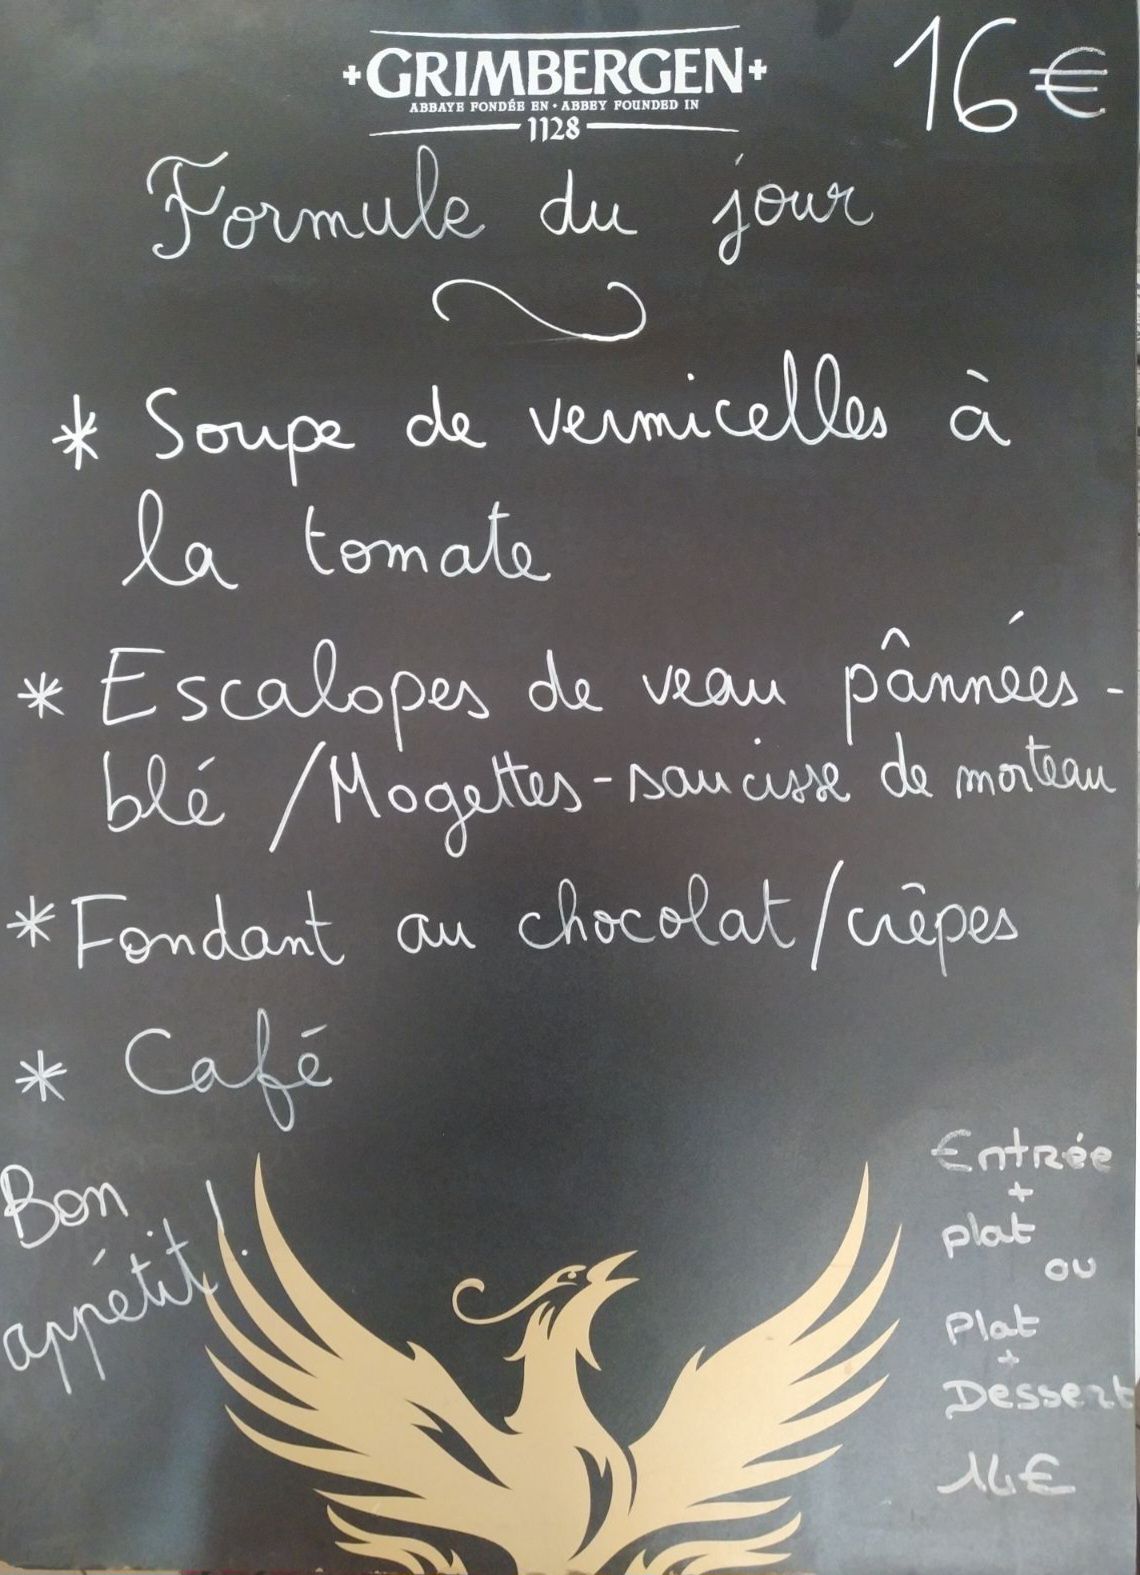 +GRIMBERGEN+
ABBAYE FONDÉE EN • ABBEY FOUNDED IN
1128
16€
Formule du jour
* Soupe de vermicelles à
la tomate
* Escalopes de veau pânnées -
blé / Mogettes - saucisse de morteau
* Fondant au chocolat / crêpes
* Café
Bon
appétit !
Entrée
+
plat
ou
Plat
+
Dessert
14€